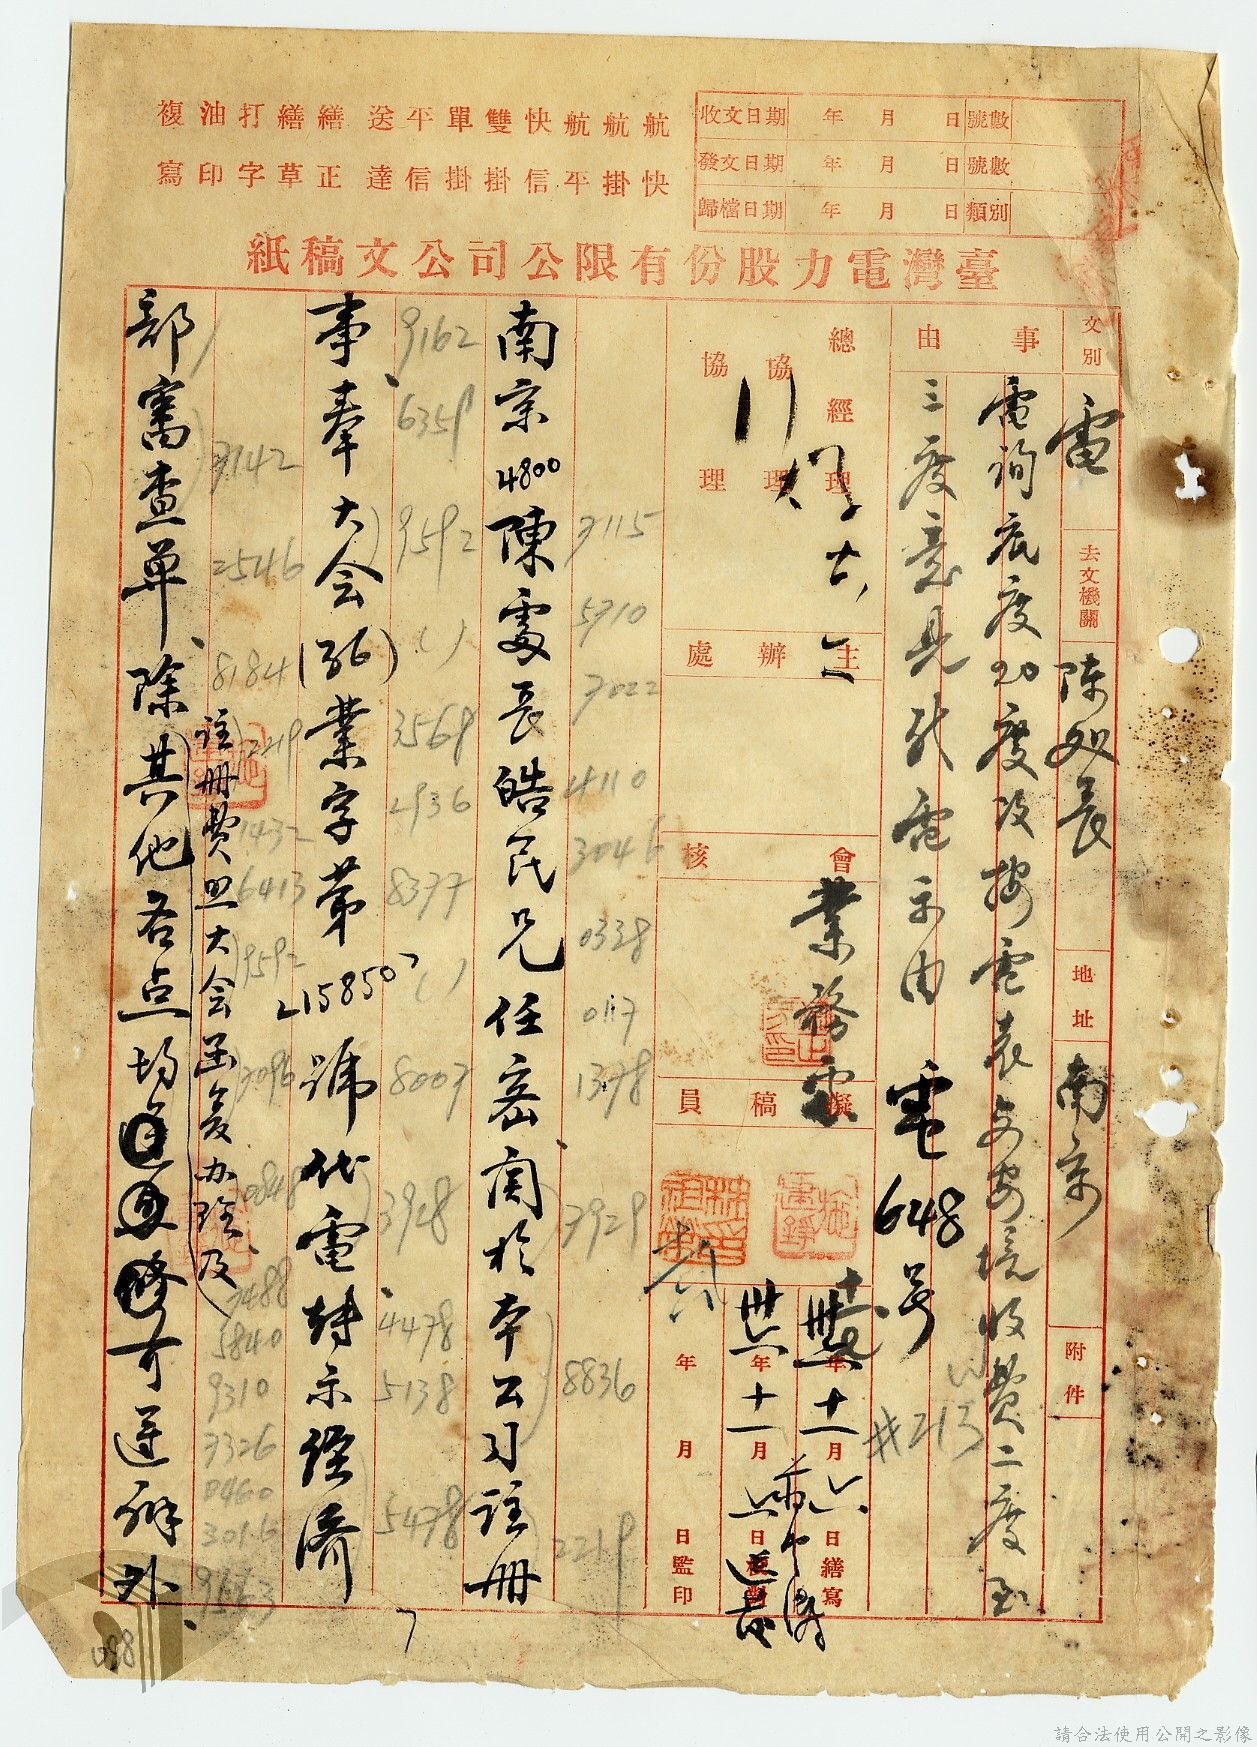 複寫 油印 打字 繕草 繕正 送達 平信 單掛 雙掛 快信 航平 航掛 航快
收文日期 年 月 日 號數
發文日期 年 月 日 號數
歸檔日期 年 月 日 類別
臺灣電力股份有限公司公文稿紙
文別 電
去文機關 陳處長
地址 南京
附件
事由
電詢底度20度改按電表安培收費二度
三度意見
電示由
電648号
#213
總經理
協理
協理
主辦處
會核
業務處
擬稿員
卅六年十一月六日繕寫
卅六年十一月六日校對
年 月 日監印
南京4800陳處長皓民兄任密関於本公司註冊
7115 5710 7022 4110 3046 0338 0117 1378 7929 8836 2219
事奉大会(36)業字第15850號代電轉示經濟
9162 6359 9592 () 3568 2936 8377 () 8007 3928 4478 5138 5478
部審查单除其他各点均可遵辦外
註冊費照大会函复办理及
7142 2546 8184 2219 1432 6413 9592 7096 0848 7488 5840 9310 7326 0460 3016
098
請合法使用公開之影像